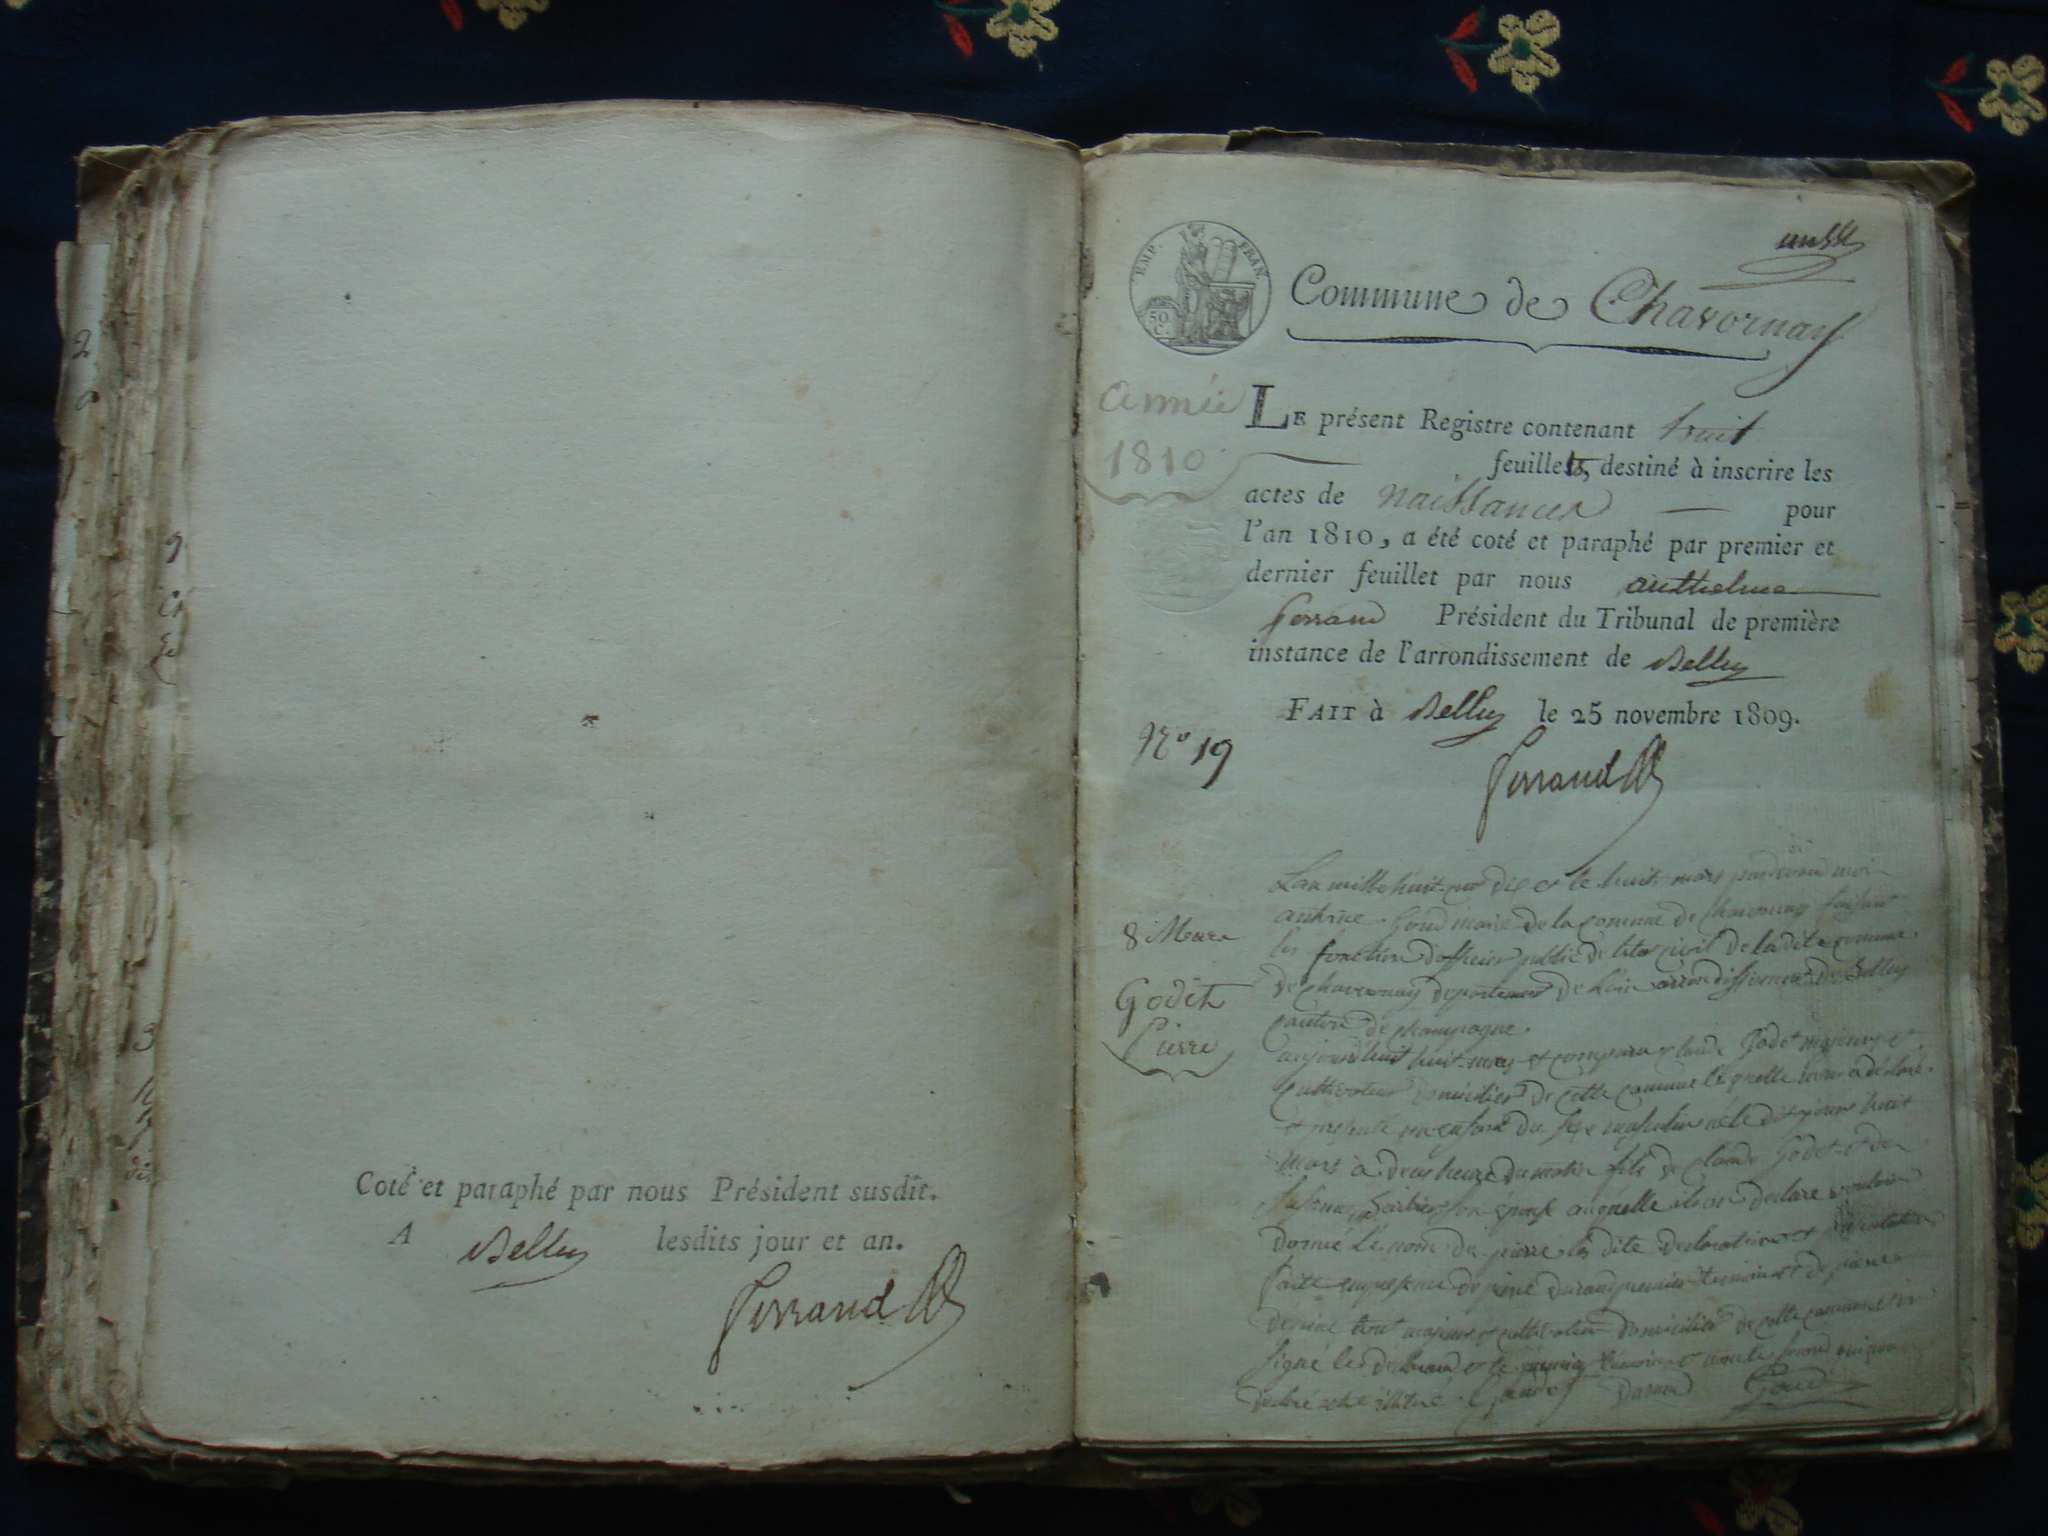 Coté et paraphé par nous Président susdit.
A Belley lesdits jour et an.
Ferrand
EMP. FRAN.
50 C.
Commune de Chavornay
année
1810
LE présent Registre contenant huit
feuillets, destiné à inscrire les
actes de naissances pour
l'an 1810, a été coté et paraphé par premier et
dernier feuillet par nous anthelme
ferrand Président du Tribunal de première
instance de l'arrondissement de Belley
FAIT à Belley le 25 novembre 1809.
Ferrand
No 19
8 Mars
Godet
Pierre
Lan mille huit cent dix et le huit mars pardevant moi
antoine Goud maire de la commune de chavornay faisant
les fonction dofficier public de letat civil de la dite commune
de chavornay departement de Lain arrondissement de Belley
canton de champagne.
aujourdhuit huit mars est comparu claude Godet majeur et
cultivateur domicilié de cette commune lequelle nous a déclaré
et presenté un enfant du sexe masculin né le dit jour huit
mars à deux heure du matin fils de claude Godet et de
son épouse auquelle ils on declare vouloir
donné le nom de pierre les dite declaration et presentation
faite en presence de pierre Durand premier temoins et de pierre
tout majeur et cultivateur domicilié de cette commune
signé le et le premier temoin et non le second
declaré etre illitéré. Goud